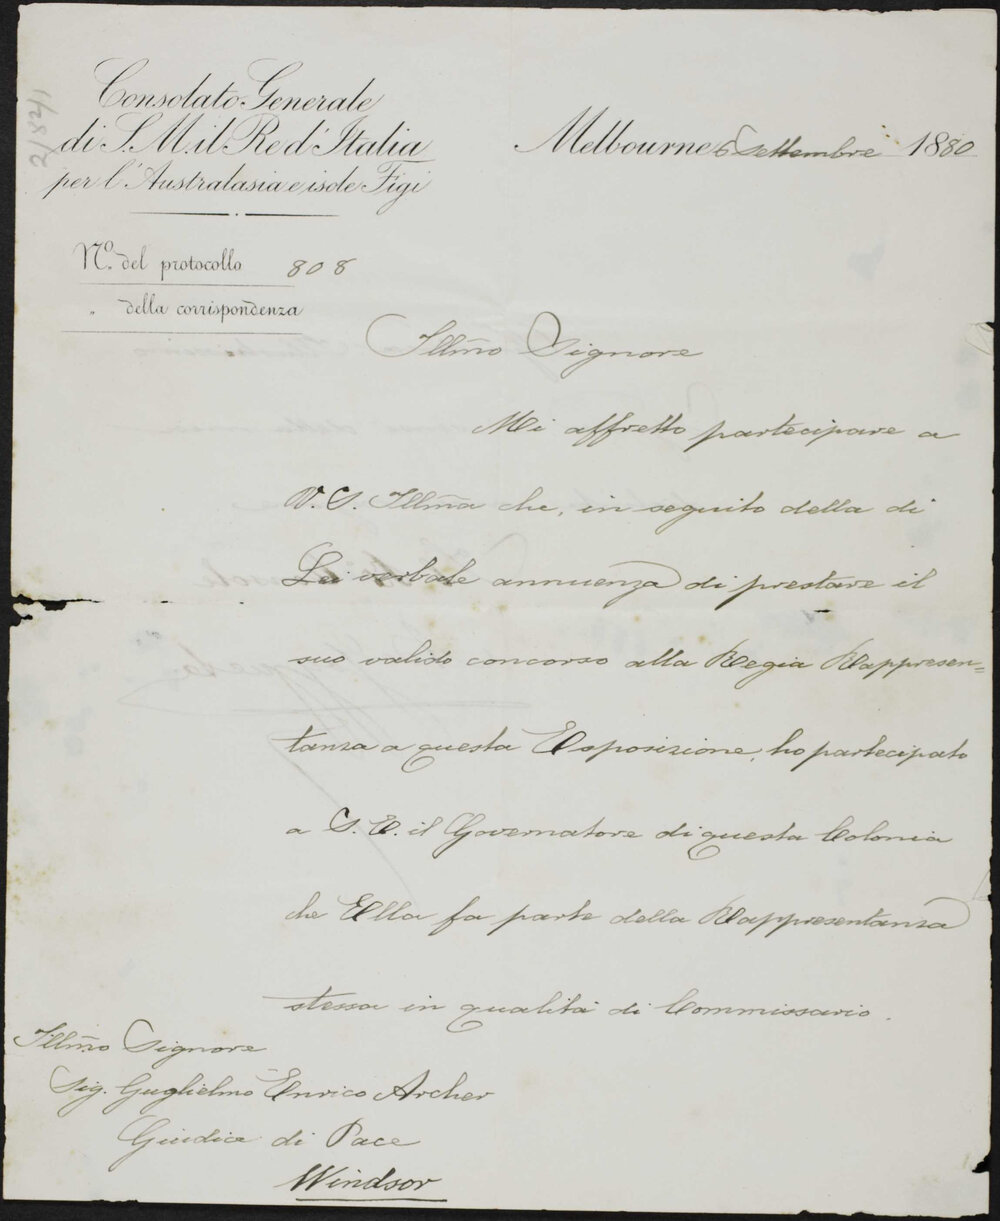 Consolato Generale
di S. M. il Re d'Italia
per l'Australasia e isole Figi
Melbourne 6 Settembre 1880
N.º del protocollo 808
" della corrispondenza
Illmo Signore
Mi affretto partecipare a
V. S. Illma che, in seguito della di
Lei verbale annuenza di prestare il
suo valido concorso alla Regia Rappresen=
tanza a questa Esposizione, ho partecipato
a S. E. il Governatore di questa Colonia
che Ella fa parte della Rappresentanza
stessa in qualità di Commissario.
Illmo Signore
Sig. Guglielmo Enrico Archer
Giudice di Pace
Windsor